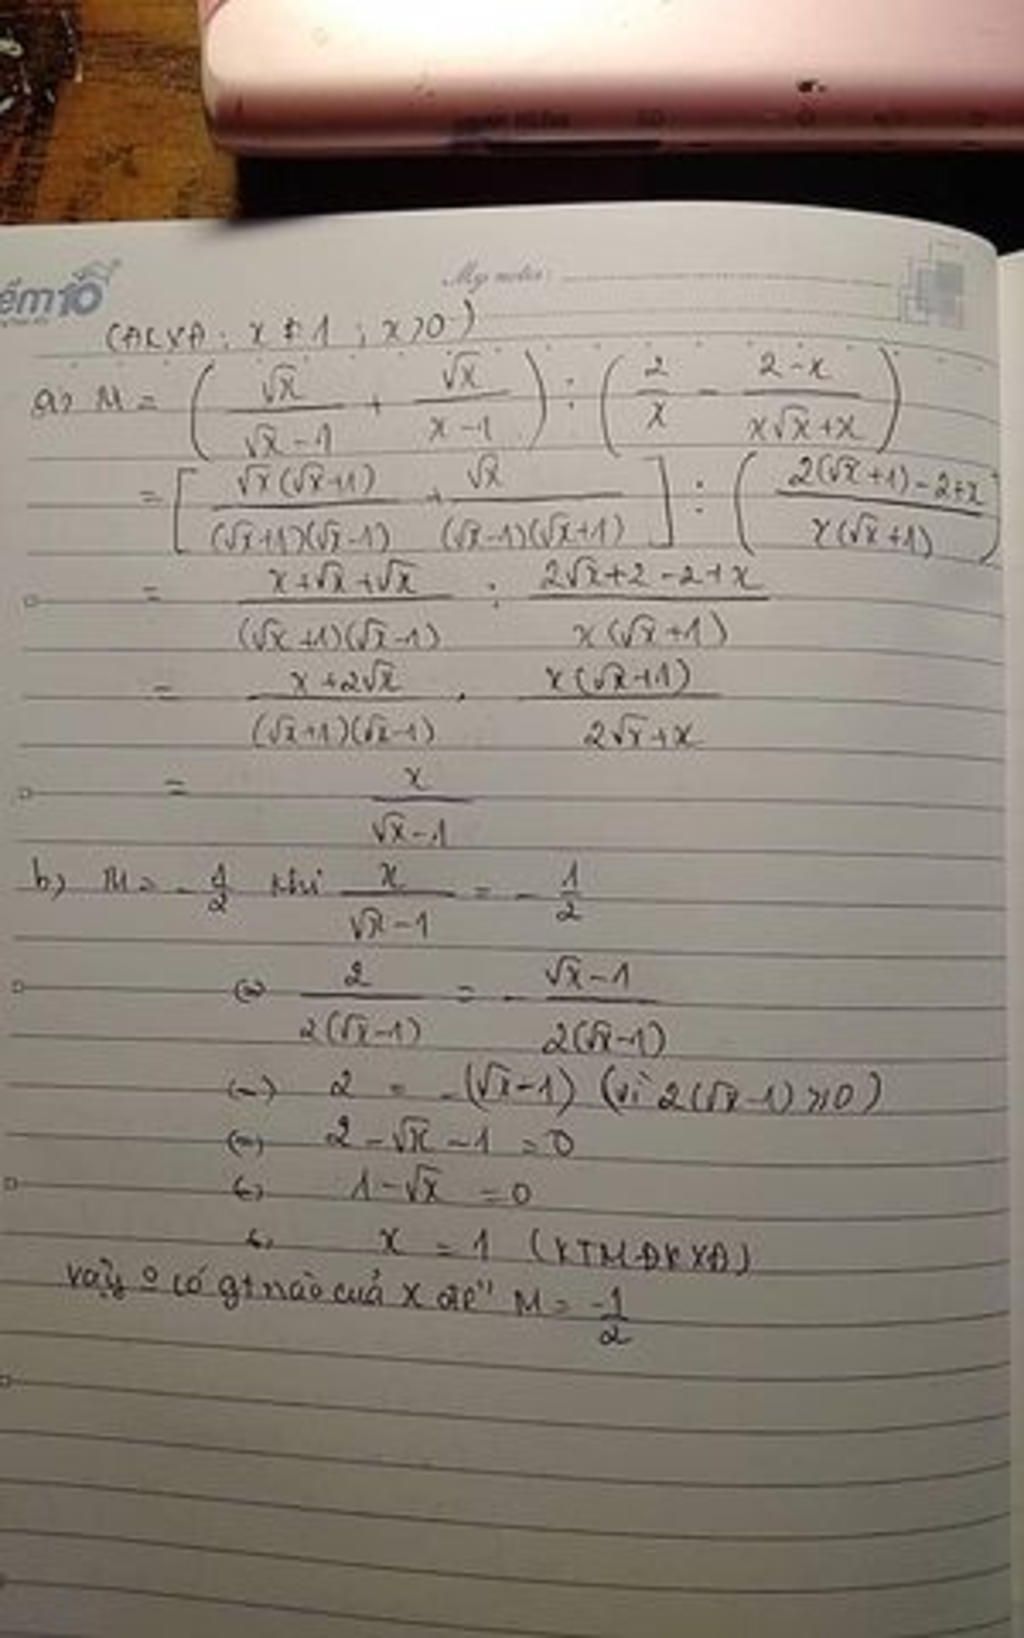 ểm10
My notes:
(ĐKXĐ: x ≠ 1; x > 0)
a) M = (√x/(√x - 1) + √x/(x - 1)) : (2/x - (2 - x)/(x√x + x))
= [√x(√x + 1)/((√x + 1)(√x - 1)) + √x/((√x - 1)(√x + 1))] : ((2(√x + 1) - 2 + x)/(x(√x + 1)))
= (x + √x + √x)/((√x + 1)(√x - 1)) : (2√x + 2 - 2 + x)/(x(√x + 1))
= (x + 2√x)/((√x + 1)(√x - 1)) . x(√x + 1)/(2√x + x)
= x/(√x - 1)
b) M = -1/2 khi x/(√x - 1) = -1/2
(=) 2/(2(√x - 1)) = -(√x - 1)/(2(√x - 1))
(=) 2 = -(√x - 1) (vì 2(√x - 1) ≥ 0)
(=) 2 - √x - 1 = 0
(=) 1 - √x = 0
(=) x = 1 (KTMĐKXĐ)
vậy o có gt nào của x để M = -1/2